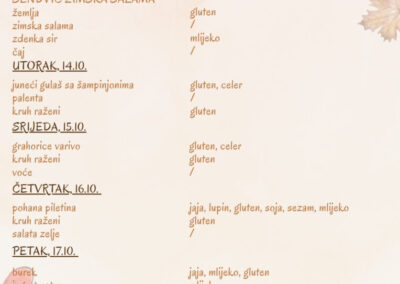 SENDVIČ ZIMSKA SALAMA
žemlja gluten
zimska salama /
zdenka sir mlijeko
čaj /
UTORAK, 14.10.
juneći gulaš sa šampinjonima gluten, celer
palenta /
kruh raženi gluten
SRIJEDA, 15.10.
grahorice varivo gluten, celer
kruh raženi gluten
voće /
ČETVRTAK, 16.10.
pohana piletina jaja, lupin, gluten, soja, sezam, mlijeko
kruh raženi gluten
salata zelje /
PETAK, 17.10.
burek jaja, mlijeko, gluten